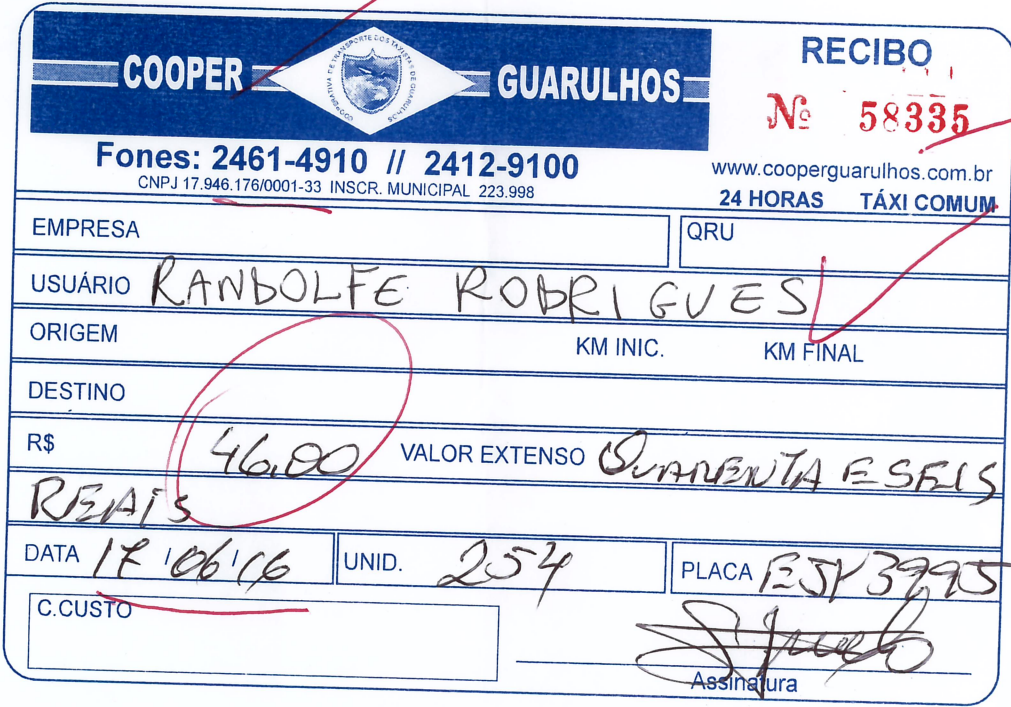 COOPER GUARULHOS
COOPERATIVA DE TRANSPORTE DOS TAXISTAS DE GUARULHOS
RECIBO
Nº 58335
Fones: 2461-4910 // 2412-9100
CNPJ 17.946.176/0001-33 INSCR. MUNICIPAL 223.998
www.cooperguarulhos.com.br
24 HORAS TÁXI COMUM
EMPRESA QRU
USUÁRIO RANDOLFE RODRIGUES
ORIGEM KM INIC. KM FINAL
DESTINO
R$ 46,00 VALOR EXTENSO QUARENTA E SEIS
REAIS
DATA 17/06/16 UNID. 254 PLACA ESY3995
C.CUSTO
Assinatura